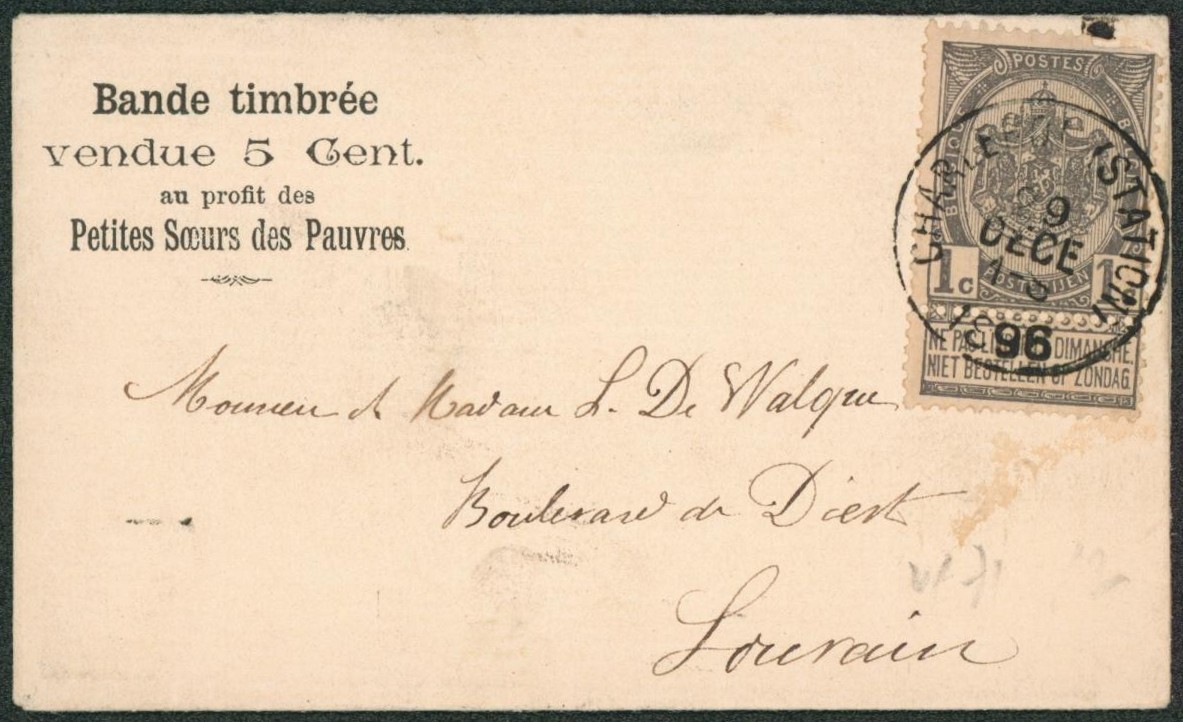 Bande timbrée
vendue 5 Cent.
au profit des
Petites Sœurs des Pauvres
POSTES
1c 1
POSTERIJEN
DIMANCHE,
NIET BESTELLEN OP ZONDAG
CHARLEROI (STATION)
9
DECE
96
Monsieur & Madame L. De Walque
Boulevard de Diest
Louvain